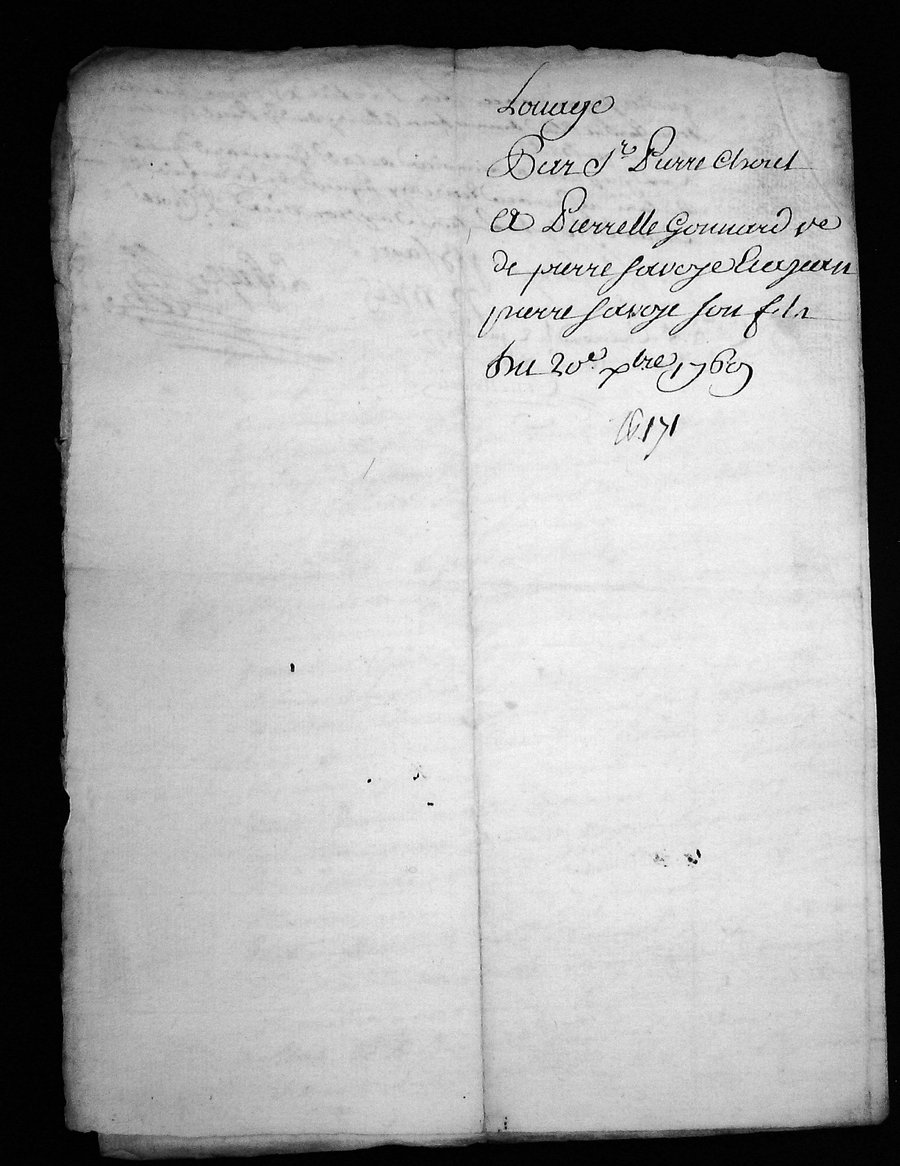 Louage
Par Sr. Pierre Chovet
A Pierrette Gonnard ve
de pierre Savoye Et a jean
pierre Savoye son fils
Du 20e xbre 1769
171